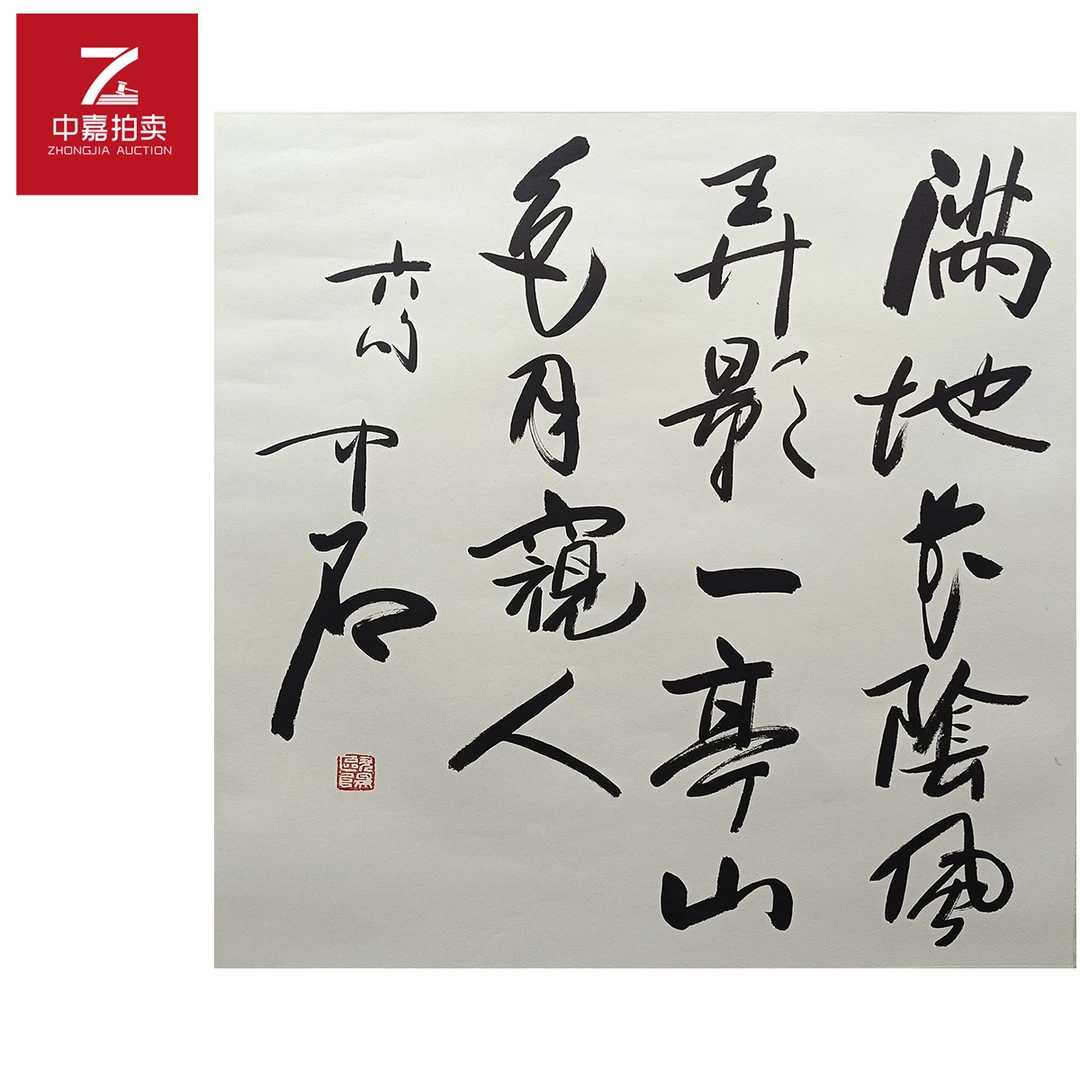 中嘉拍卖
ZHONGJIA AUCTION
滿地花陰風
弄影一亭山
色月窺人
齐
中石